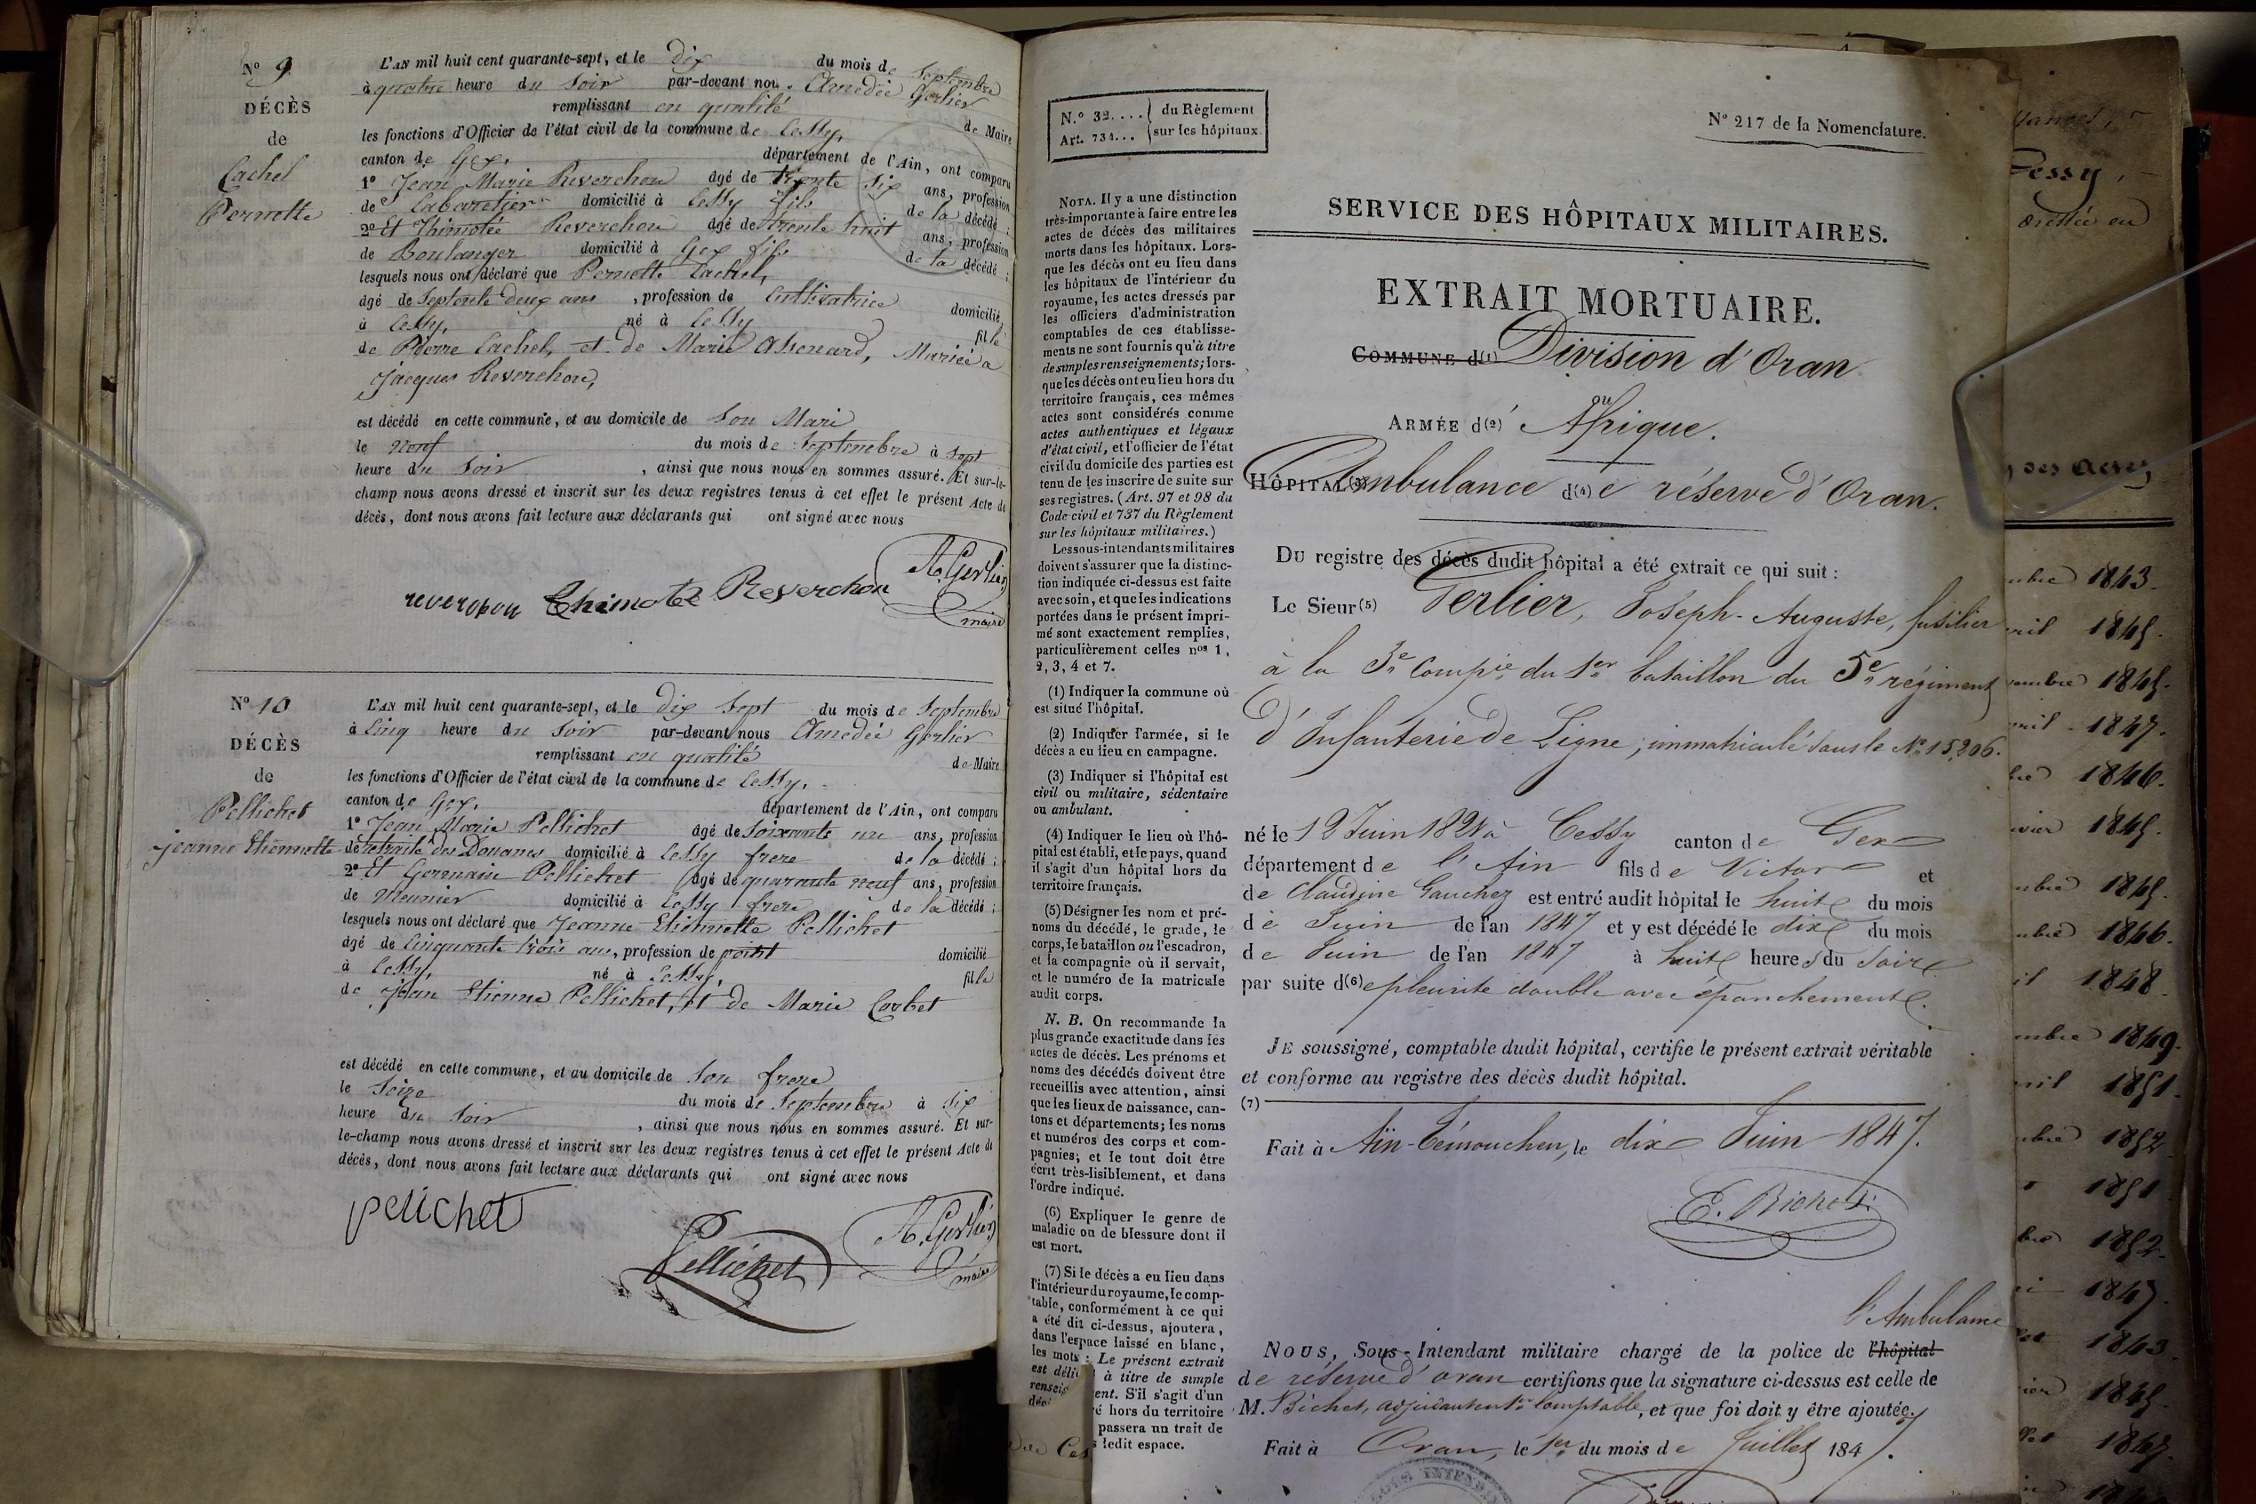 N° 9
DÉCÈS
de
Cachet
Pernette
L'AN mil huit cent quarante-sept, et le dix du mois de Septembre
à quatre heure du Soir par-devant nous Amédée Gerlier
remplissant en qualité de Maire
les fonctions d'Officier de l'état civil de la commune de Cessy,
canton de Gex, département de l'Ain, ont comparu
1° Jean Marie Reverchon âgé de trente six ans, profession
de Cabaretier domicilié à Cessy fils de la décédé ;
2° Et Thimotée Reverchon âgé de trente huit ans, profession
de Boulanger domicilié à Gex fils de la décédé ;
lesquels nous ont déclaré que Pernette Cachet,
âgé de Septente deux ans , profession de Cultivatrice domicilié
à Cessy, né à Cessy fille
de Pierre Cachet, et de Marie , Mariée a
Jacques Reverchon,
est décédé en cette commune, et au domicile de Son Mari
le Neuf du mois de Septembre à Sept
heure du Soir , ainsi que nous nous en sommes assuré. Et sur-le-
champ nous avons dressé et inscrit sur les deux registres tenus à cet effet le présent Acte de
décès, dont nous avons fait lecture aux déclarants qui ont signé avec nous
reverchon Thimotée Reverchon A. Gerlier
maire
N° 10
DÉCÈS
de
Pellichet
jeanne Etiennette
L'AN mil huit cent quarante-sept, et le dix Sept du mois de Septembre
à Cinq heure du Soir par-devant nous Amédée Gerlier
remplissant en qualité de Maire
les fonctions d'Officier de l'état civil de la commune de Cessy,
canton de Gex, département de l'Ain, ont comparu
1° Jean Marie Pellichet âgé de Soixante un ans, profession
de retraité des Douanes domicilié à Cessy frere de la décédé ;
2° Et Germain Pellichet âgé de quarante neuf ans, profession
de Meunier domicilié à Cessy frere de la décédé ;
lesquels nous ont déclaré que Jeanne Etiennette Pellichet
âgé de Cinquante trois ans, profession de point domicilié
à Cessy, né à Cessy, fille
de Jean Etienne Pellichet, et de Marie Corbet
est décédé en cette commune, et au domicile de Son frere
le Seize du mois de Septembre à Six
heure du Soir , ainsi que nous nous en sommes assuré. Et sur-
le-champ nous avons dressé et inscrit sur les deux registres tenus à cet effet le présent Acte de
décès, dont nous avons fait lecture aux déclarants qui ont signé avec nous
pellichet
Pellichet A. Gerlier
maire
N.° 32.... du Règlement
Art. 734... sur les hôpitaux
N° 217 de la Nomenclature.
NOTA. Il y a une distinction
très-importante à faire entre les
actes de décès des militaires
morts dans les hôpitaux. Lors-
que les décès ont eu lieu dans
les hôpitaux de l'intérieur du
royaume, les actes dressés par
les officiers d'administration
comptables de ces établisse-
ments ne sont fournis qu'à titre
de simples renseignements; lors-
que les décès ont eu lieu hors du
territoire français, ces mêmes
actes sont considérés comme
actes authentiques et légaux
d'état civil, et l'officier de l'état
civil du domicile des parties est
tenu de les inscrire de suite sur
ses registres. (Art. 97 et 98 du
Code civil et 737 du Règlement
sur les hôpitaux militaires.)
Les sous-intendants militaires
doivent s'assurer que la distinc-
tion indiquée ci-dessus est faite
avec soin, et que les indications
portées dans le présent impri-
mé sont exactement remplies,
particulièrement celles nos 1,
2, 3, 4 et 7.
(1) Indiquer la commune où
est situé l'hôpital.
(2) Indiquer l'armée, si le
décès a eu lieu en campagne.
(3) Indiquer si l'hôpital est
civil ou militaire, sédentaire
ou ambulant.
(4) Indiquer le lieu où l'hô-
pital est établi, et le pays, quand
il s'agit d'un hôpital hors du
territoire français.
(5) Désigner les nom et pré-
noms du décédé, le grade, le
corps, le bataillon ou l'escadron,
et la compagnie où il servait,
et le numéro de la matricule
audit corps.
N. B. On recommande la
plus grande exactitude dans les
actes de décès. Les prénoms et
noms des décédés doivent être
recueillis avec attention, ainsi
que les lieux de naissance, can-
tons et départements; les noms
et numéros des corps et com-
pagnies; et le tout doit être
écrit très-lisiblement, et dans
l'ordre indiqué.
(6) Expliquer le genre de
maladie ou de blessure dont il
est mort.
(7) Si le décès a eu lieu dans
l'intérieur du royaume, le comp-
table, conformément à ce qui
a été dit ci-dessus, ajoutera,
dans l'espace laissé en blanc,
les mots : Le présent extrait
est déli à titre de simple
rensei ent. S'il s'agit d'un
déc é hors du territoire
passera un trait de
s ledit espace.
SERVICE DES HÔPITAUX MILITAIRES.
EXTRAIT MORTUAIRE.
COMMUNE d(1) Division d'Oran
ou
ARMÉE d(2)' Afrique.
HÔPITAL(3) Ambulance d(4) e réserve d'Oran.
DU registre des décès dudit hôpital a été extrait ce qui suit :
Le Sieur(5) Gerlier, Joseph-Auguste, fusilier
à la 3e Compie du 1er bataillon du 5e régiment
d'Infanterie de Ligne, immatriculé sous le No 15,206.
né le 12 Juin 1821 à Cessy canton de Gex
département de l'Ain fils de Victor et
de Claudine Gauchez est entré audit hôpital le huit du mois
de Juin de l'an 1847 et y est décédé le dix du mois
de Juin de l'an 1847 à huit heures du Soir
par suite d(6)e pleurite double avec epanchement.
JE soussigné, comptable dudit hôpital, certifie le présent extrait véritable
et conforme au registre des décès dudit hôpital.
(7)
Fait à Aïn-Témouchen, le dix Juin 1847.
E. Bichet
l'Ambulance
NOUS, Sous-Intendant militaire chargé de la police de l'hôpital
de réserve d'oran certifions que la signature ci-dessus est celle de
M. Bichet, adjudant en 1er Comptable, et que foi doit y être ajoutée.
Fait à Oran, le 1er du mois de Juillet 1847.
SOUS INTENDAN
Cessy,
1843
1845
1845
1847
1846
1845
1845
1846
1848
1849
1851
1852
1851
1852
1847
1843
1845
1847